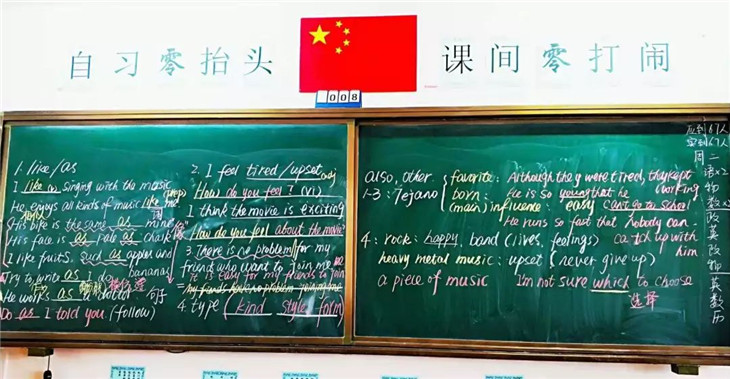 自习零抬头
课间零打闹
008
1. like/as
I like (v.) singing with the music
He enjoys all kinds of music like me
His bike is the same as mine
His face is as pale as chalk
I like fruits, such as apples and
bananas
Try to write as I do
He works as a doctor
Do as I told you (follow)
2. I feel tired/upset
How do you feel? (vi)
I think the movie is exciting
How do you feel about the movie?
3. There is no problem for my
friend who want to join me
It is easy for my friends to join
4. type (kind style form)
also, other
1-3: Tejano
favorite:
born:
(main) influence
Although they were tired, they kept
working
He is so young that he
can't go to school
easy
He runs so fast that nobody can
catch up with
him
4: rock: happy, band (lives, feelings)
heavy metal music: upset (never give up)
a piece of music
I'm not sure which to choose
选择
应到67人
实到67人
周二
语×2
物
数×2
政
英
改
物
英
数
历